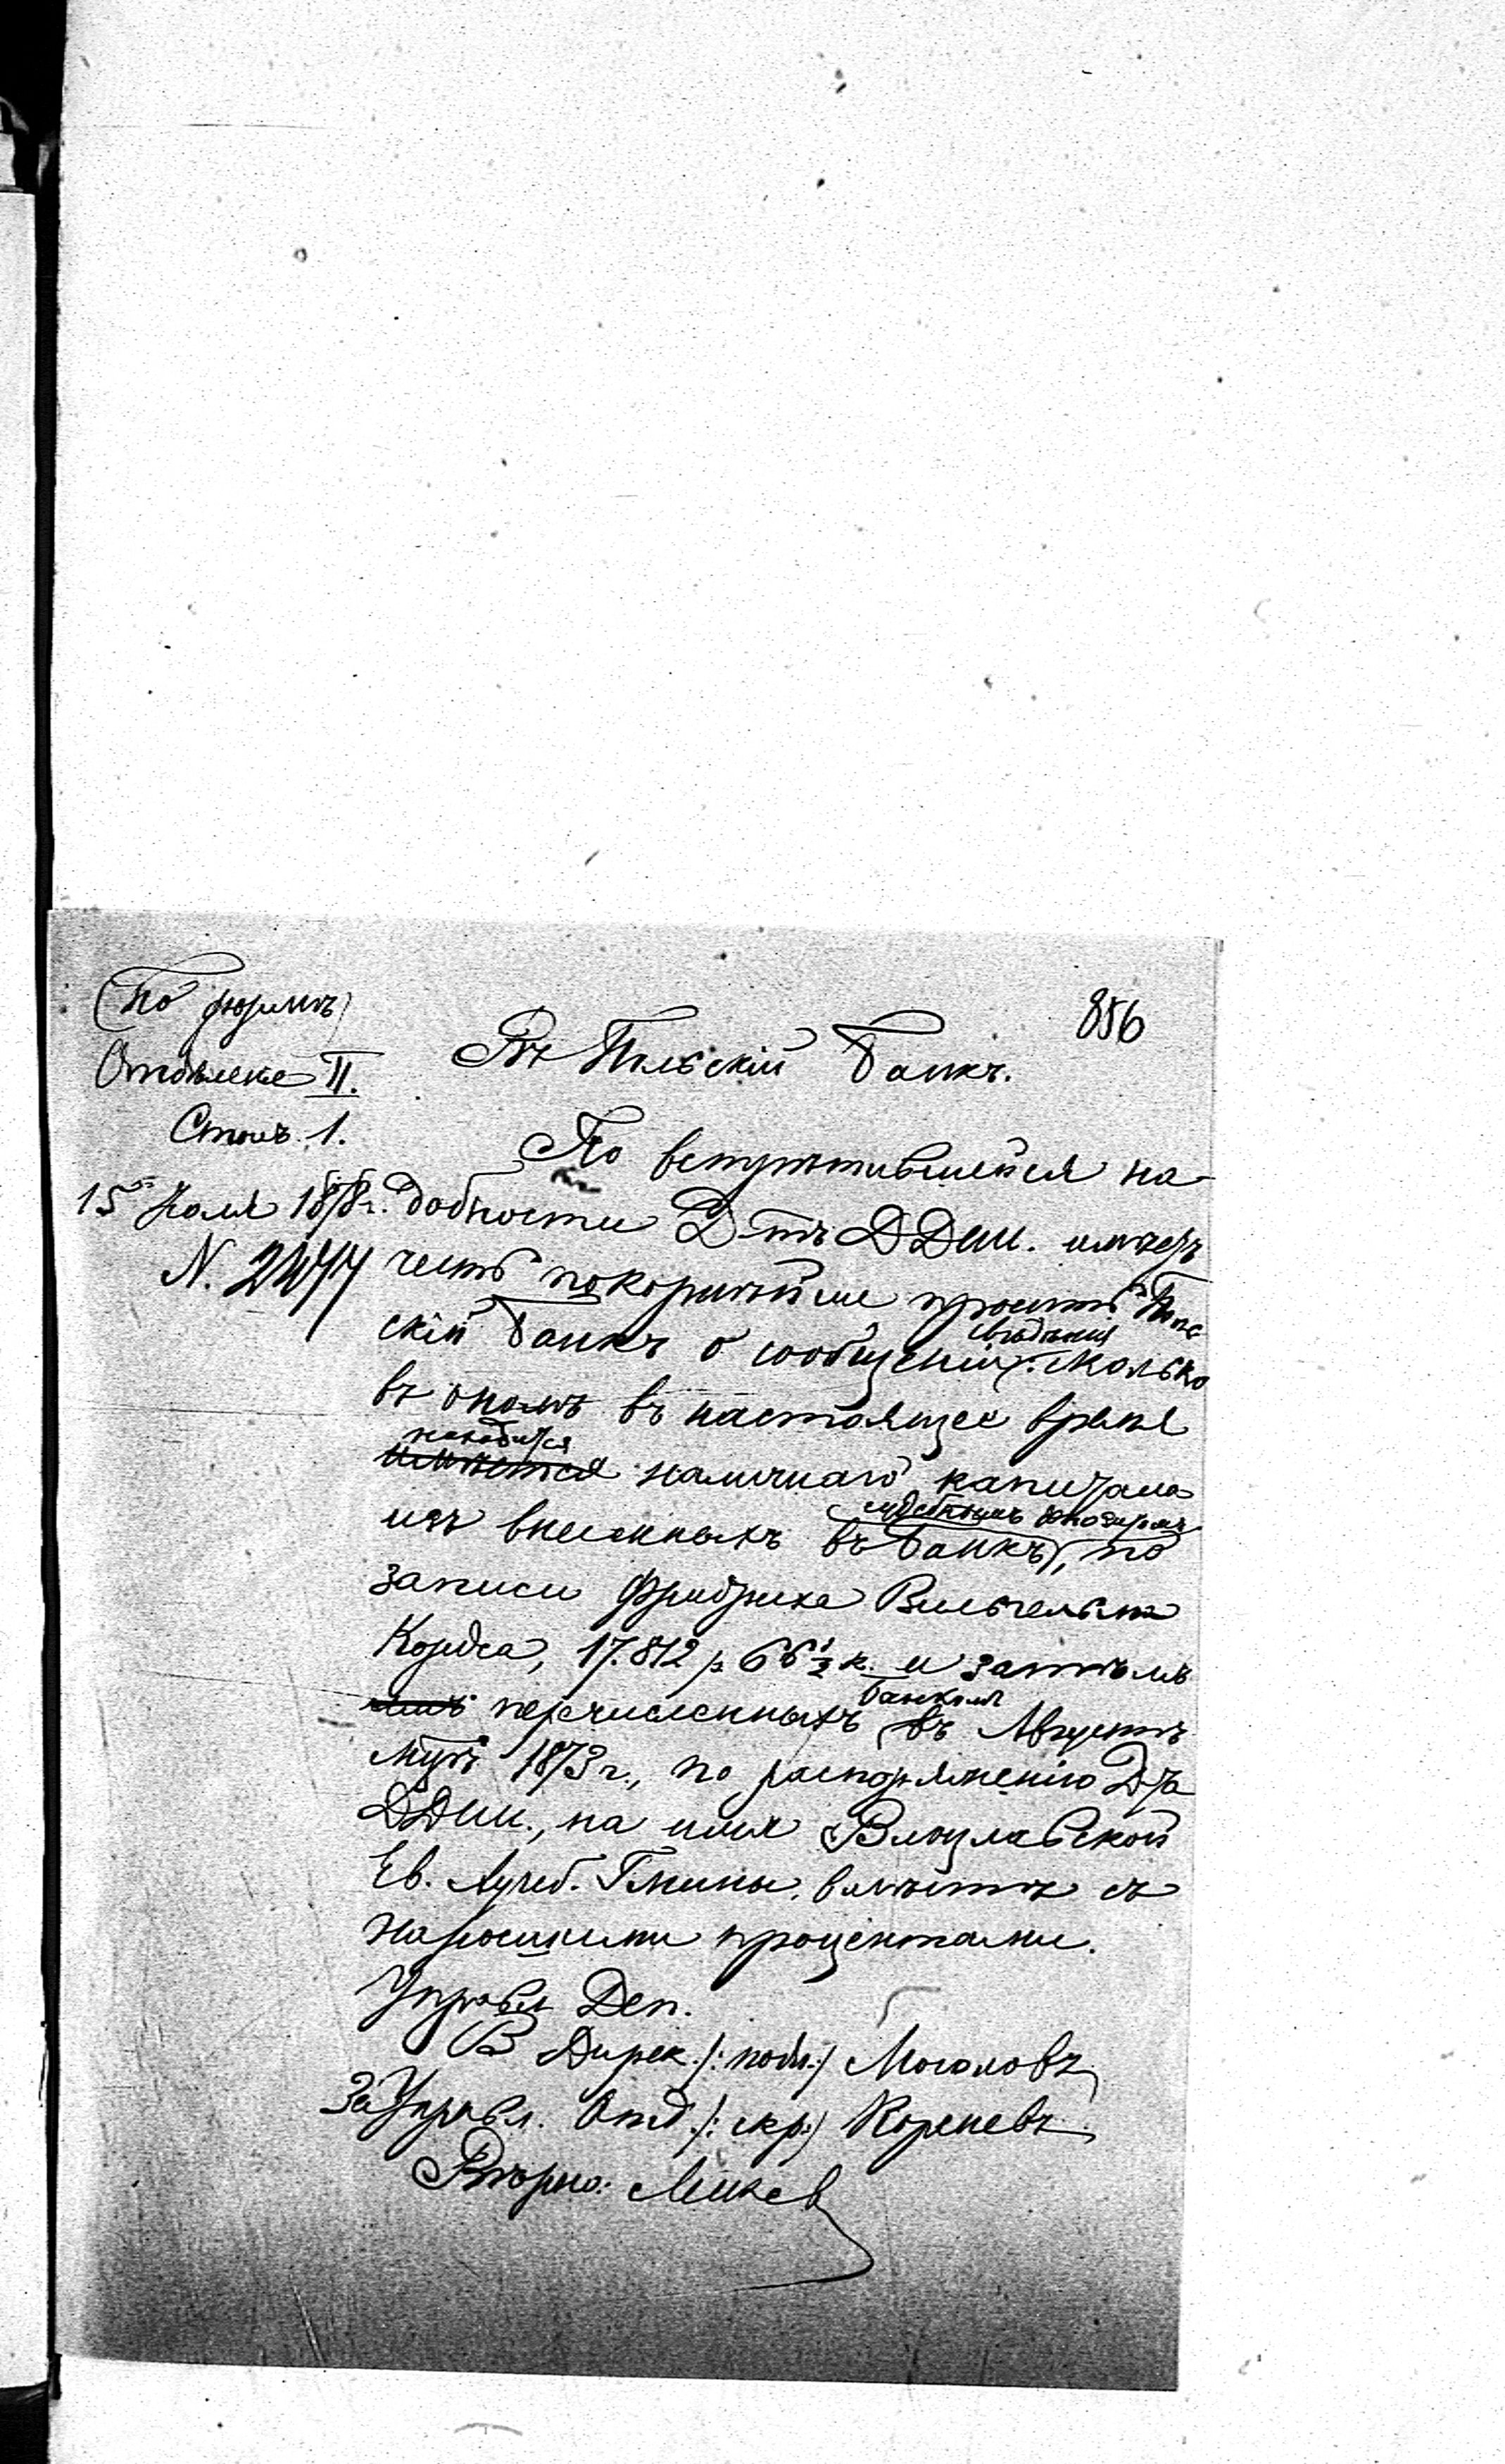 (По формѣ)
856
Отдѣленіе II.
Въ Польскій Банкъ.
Столъ 1.
По встрѣтившейся на-
15 Іюля 1878 г.
добности Д-тъ ДДИИ. имѣетъ
N. 2477
честь покорнѣйше просить Поль-
скій Банкъ о сообщеніи свѣдѣнія: сколько
въ ономъ въ настоящее время
находится
имѣется наличнаго капитала
изъ внесенныхъ въ Банкъ, по
записи Фридриха Вильгельма
Кордса, 17.812 р. 66½ к. и затѣмъ
перечисленныхъ Банкомъ въ Августѣ
1873 г., по распоряженію Д-та
ДДИИ., на имя Влоцлавской
Ев. Аугсб. Гмины, вмѣстѣ съ
наросшими процентами.
Управл. Деп.
В Дирек. /: подп :/ Мосоловъ
За Управл. Отд. /: скр :/ Кореневъ
Вѣрно: